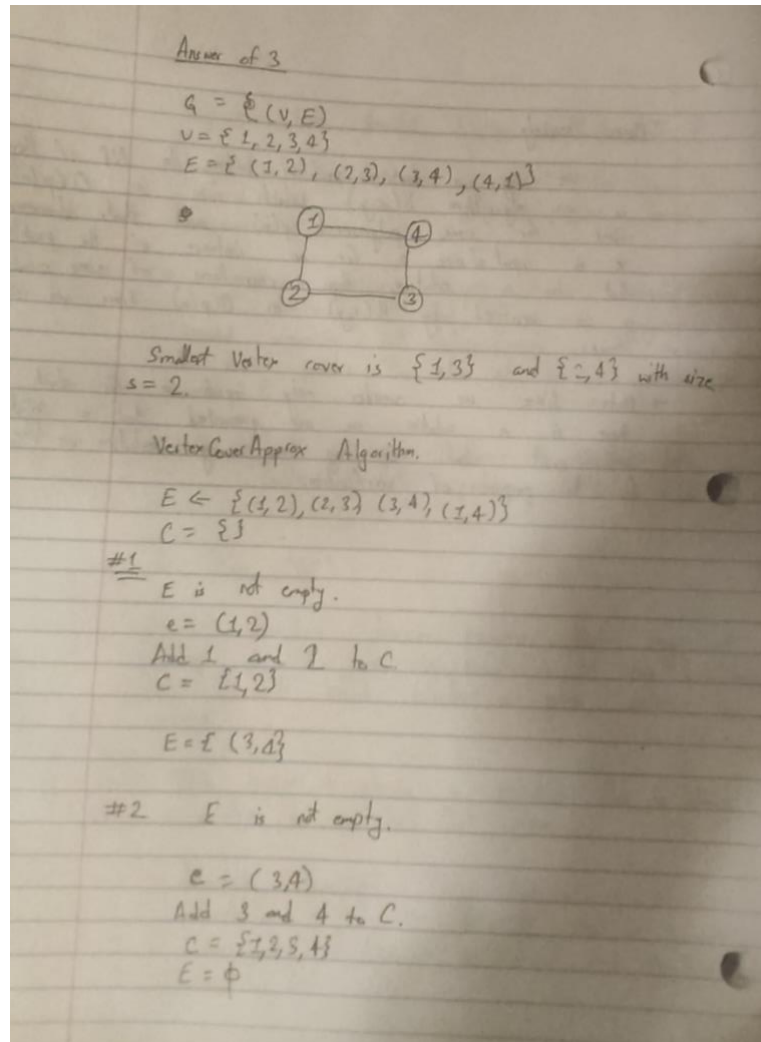 Answer of 3
G = {(V, E)
V = { 1, 2, 3, 4}
E = { (1,2), (2,3), (3,4), (4,1)}
1 4
2 3
Smallest Vertex cover is {1,3} and {2,4} with size
s = 2.
VertexCoverApprox Algorithm.
E ← {(1,2), (2,3) (3,4), (1,4)}
C = {}
#1
E is not empty.
e = (1,2)
Add 1 and 2 to C
C = {1,2}
E = { (3,4}
#2 E is not empty.
e = (3,4)
Add 3 and 4 to C.
C = {1,2,3,4}
E = ϕ